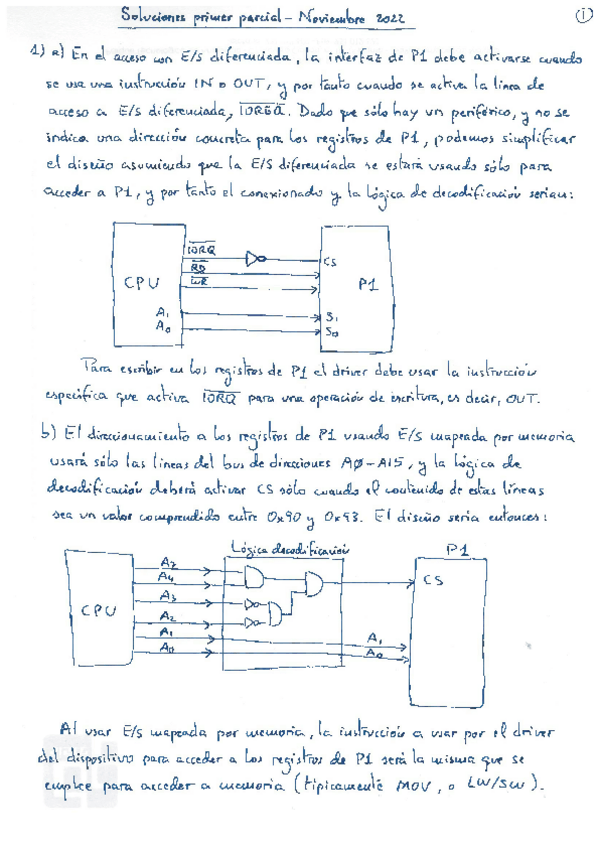 Soluciones primer parcial - Noviembre 2022
1
1) a) En el acceso con E/S diferenciada, la interfaz de P1 debe activarse cuando
se use una instrucción IN o OUT, y por tanto cuando se active la línea de
acceso a E/S diferenciada, IORQ. Dado que sólo hay un periférico, y no se
indica una dirección concreta para los registros de P1, podemos simplificar
el diseño asumiendo que la E/S diferenciada se estará usando sólo para
acceder a P1, y por tanto el conexionado y la lógica de decodificación serían:
IORQ
CS
RD
WR
CPU
P1
A1
S1
A0
S0
Para escribir en los registros de P1 el driver debe usar la instrucción
específica que activa IORQ para una operación de escritura, es decir, OUT.
b) El direccionamiento a los registros de P1 usando E/S mapeada por memoria
usará sólo las líneas del bus de direcciones A0-A15, y la lógica de
decodificación deberá activar CS sólo cuando el contenido de estas líneas
sea un valor comprendido entre 0x90 y 0x93. El diseño sería entonces:
Lógica decodificación
P1
A7
A4
CS
A3
CPU
A2
A1
A1
A0
A0
Al usar E/S mapeada por memoria, la instrucción a usar por el driver
del dispositivo para acceder a los registros de P1 será la misma que se
emplee para acceder a memoria (típicamente MOV, o LW/SW).